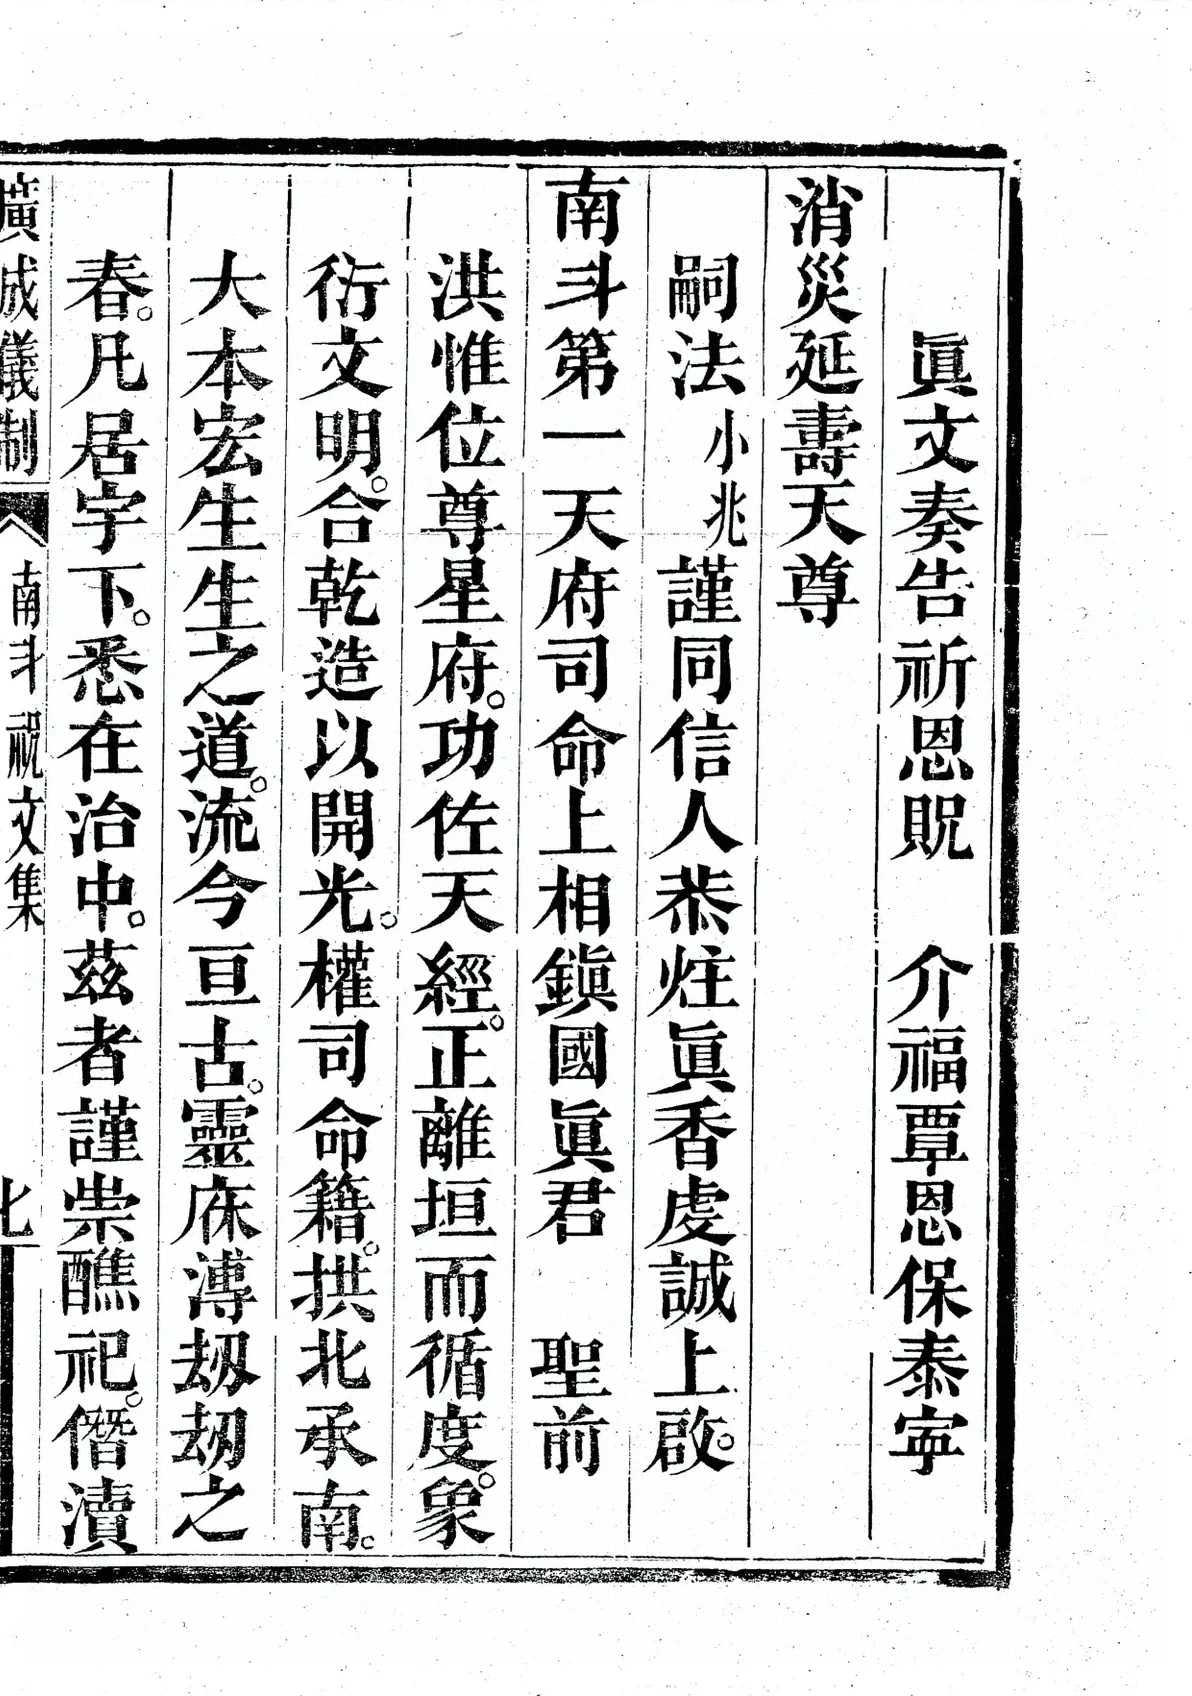 眞文奏告祈恩貺　介福覃恩保泰寕
消災延壽天尊
嗣法小兆謹同信人恭炷眞香虔誠上啟。
南斗第一天府司命上相鎭國眞君　聖前
洪惟位尊星府。功佐天經。正離垣而循度。象
衍文明。合乾造以開光。權司命籍。拱北承南。
大本宏生生之道。流今亘古。靈庥溥刼刼之
春。凡居宇下。悉在治中。茲者謹崇醮祀。僭瀆
廣成儀制　南斗祝文集　七